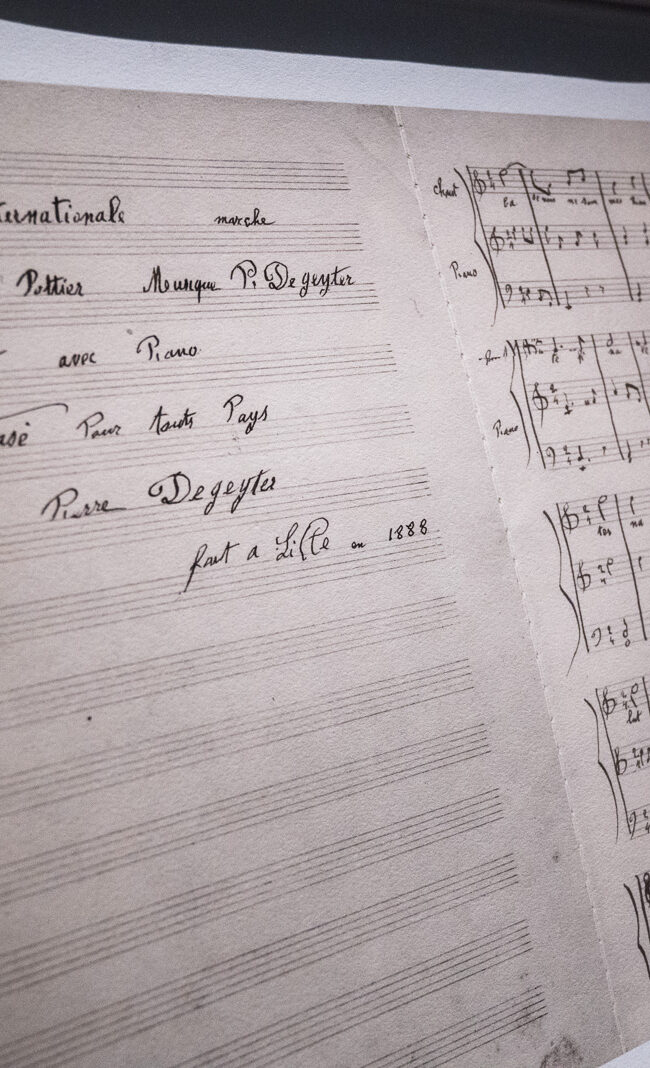 ternationale marche
Pottier Musique P. Degeyter
avec Piano
Pour touts Pays
Pierre Degeyter
fait a Lille en 1888
Chant
Piano
Piano
ter na
lut